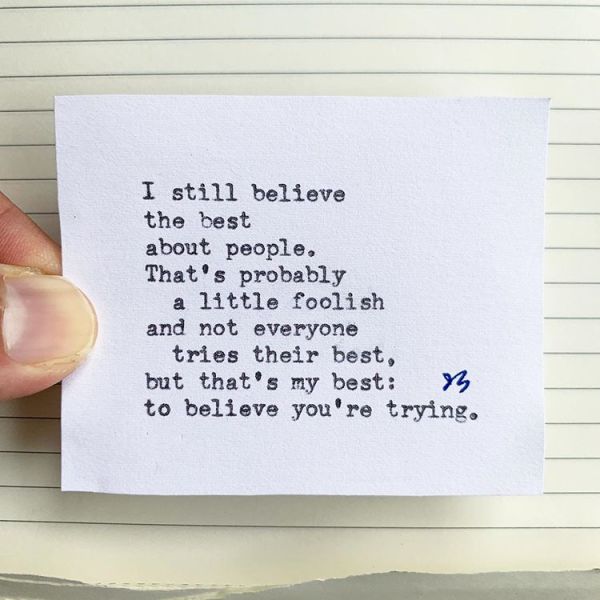 I still believe
the best
about people.
That's probably
a little foolish
and not everyone
tries their best,
but that's my best:
to believe you're trying.